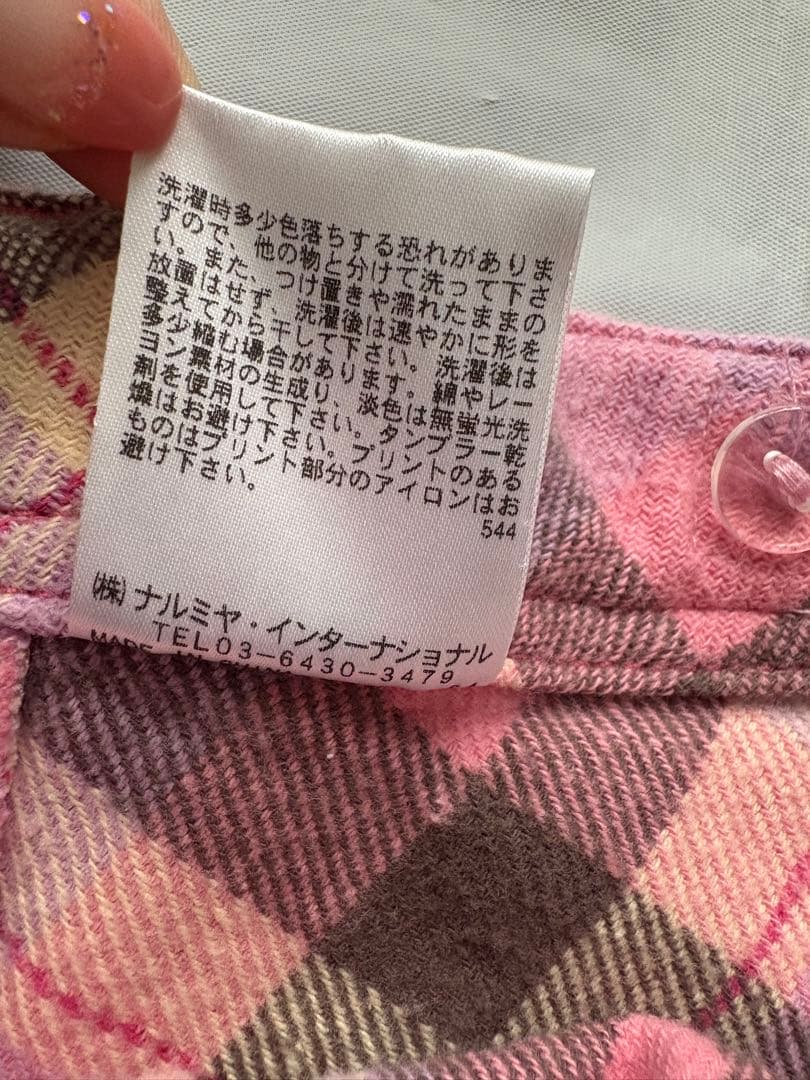 洗濯時多少色落ちする恐れがありま
すので、他の物と分けて洗って下さ
い。また、つけ置きや濡れたままの
放置はせず、洗濯後は速やかに形を
整えてから干して下さい。洗濯後は
多少縮む場合があります。綿やレー
ヨン素材の生成り、淡色は無蛍光洗
剤を使用して下さい。タンブラー乾
燥はお避け下さい。プリントのある
ものはプリント部分のアイロンはお
避け下さい。
544
(株)ナルミヤ・インターナショナル
TEL03-6430-3479
MADE